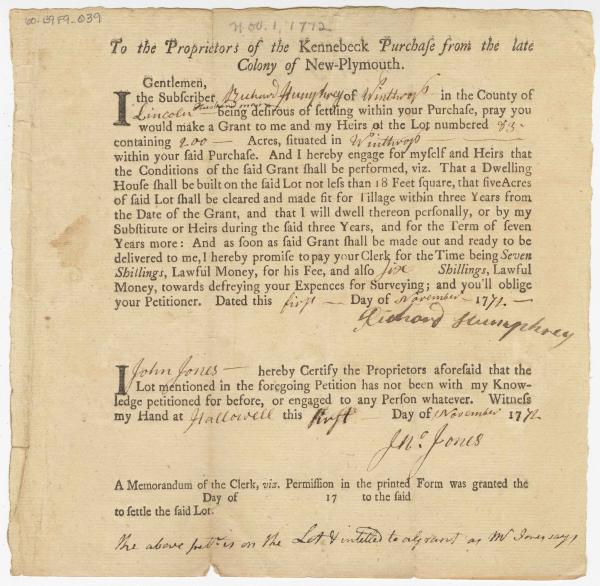 Nov. 1, 1772
To the Proprietors of the Kennebeck Purchaſe from the late
Colony of New-Plymouth.
Gentlemen,
I the Subſcriber Richard Humphrey of Winthrop in the County of
Lincoln Husbandman being deſirous of ſettling within your Purchaſe, pray you
would make a Grant to me and my Heirs of the Lot numbered 83
containing 200 — Acres, ſituated in Winthrop
within your ſaid Purchaſe. And I hereby engage for myſelf and Heirs that
the Conditions of the ſaid Grant ſhall be performed, viz. That a Dwelling
Houſe ſhall be built on the ſaid Lot not leſs than 18 Feet ſquare, that five Acres
of ſaid Lot ſhall be cleared and made fit for Tillage within three Years from
the Date of the Grant, and that I will dwell thereon perſonally, or by my
Subſtitute or Heirs during the ſaid three Years, and for the Term of ſeven
Years more: And as ſoon as ſaid Grant ſhall be made out and ready to be
delivered to me, I hereby promiſe to pay your Clerk for the Time being Seven
Shillings, Lawful Money, for his Fee, and alſo ſix Shillings, Lawful
Money, towards defreying your Expences for Surveying; and you'll oblige
your Petitioner. Dated this firſt — Day of November — 177
Richard Humphrey
I John Jones — hereby Certify the Proprietors aforeſaid that the
Lot mentioned in the foregoing Petition has not been with my Know-
ledge petitioned for before, or engaged to any Perſon whatever. Witneſs
my Hand at Hallowell this firſt — Day of November 177
Jnº. Jones
A Memorandum of the Clerk, viz. Permiſſion in the printed Form was granted the
Day of 17 to the ſaid
to ſettle the ſaid Lot.
the above is on the Lot & intitled to a grant as Mr Jones says